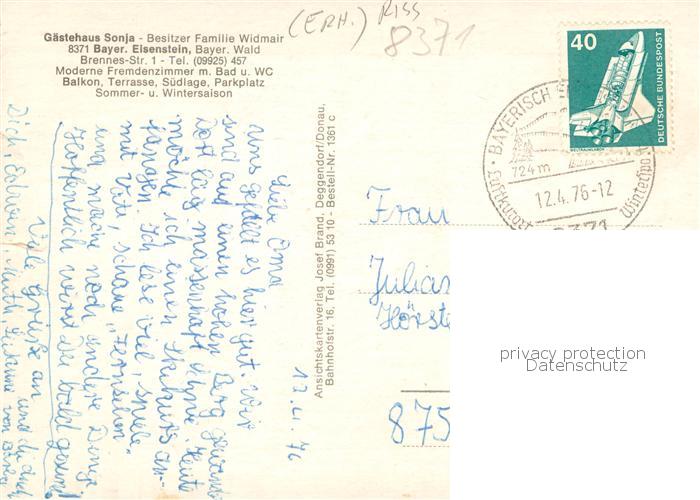 (ERH.) RISS
8371
Gästehaus Sonja - Besitzer Familie Widmair
8371 Bayer. Eisenstein, Bayer. Wald
Brennes-Str. 1 - Tel. (09925) 457
Moderne Fremdenzimmer m. Bad u. WC
Balkon, Terrasse, Südlage, Parkplatz
Sommer- u. Wintersaison
40
DEUTSCHE BUNDESPOST
WELTRAUMLABOR
BAYERISCH
724 m
12.4.76-12
Luftkurort
Winterspo
8371
Ansichtskartenverlag Josef Brand, Deggendorf/Donau,
Bahnhofstr. 16, Tel. (0991) 53 10 - Bestell-Nr. 1361 c
12.4.76
Liebe Oma
Uns gefällt es hier gut. Wir
sind auf einen hohen Berg gewandert
Dort lag massenhaft Schnee. Heute
möchte ich einen Skikurs an-
fangen. Ich lese viel, spiele
mit Vati, schaue Fernsehen
und mache noch andere Dinge
Hoffentlich wirst Du bald gesund
Viele Grüße an
Dich, und
Frau
Julian
Hörste
875
privacy protection
Datenschutz